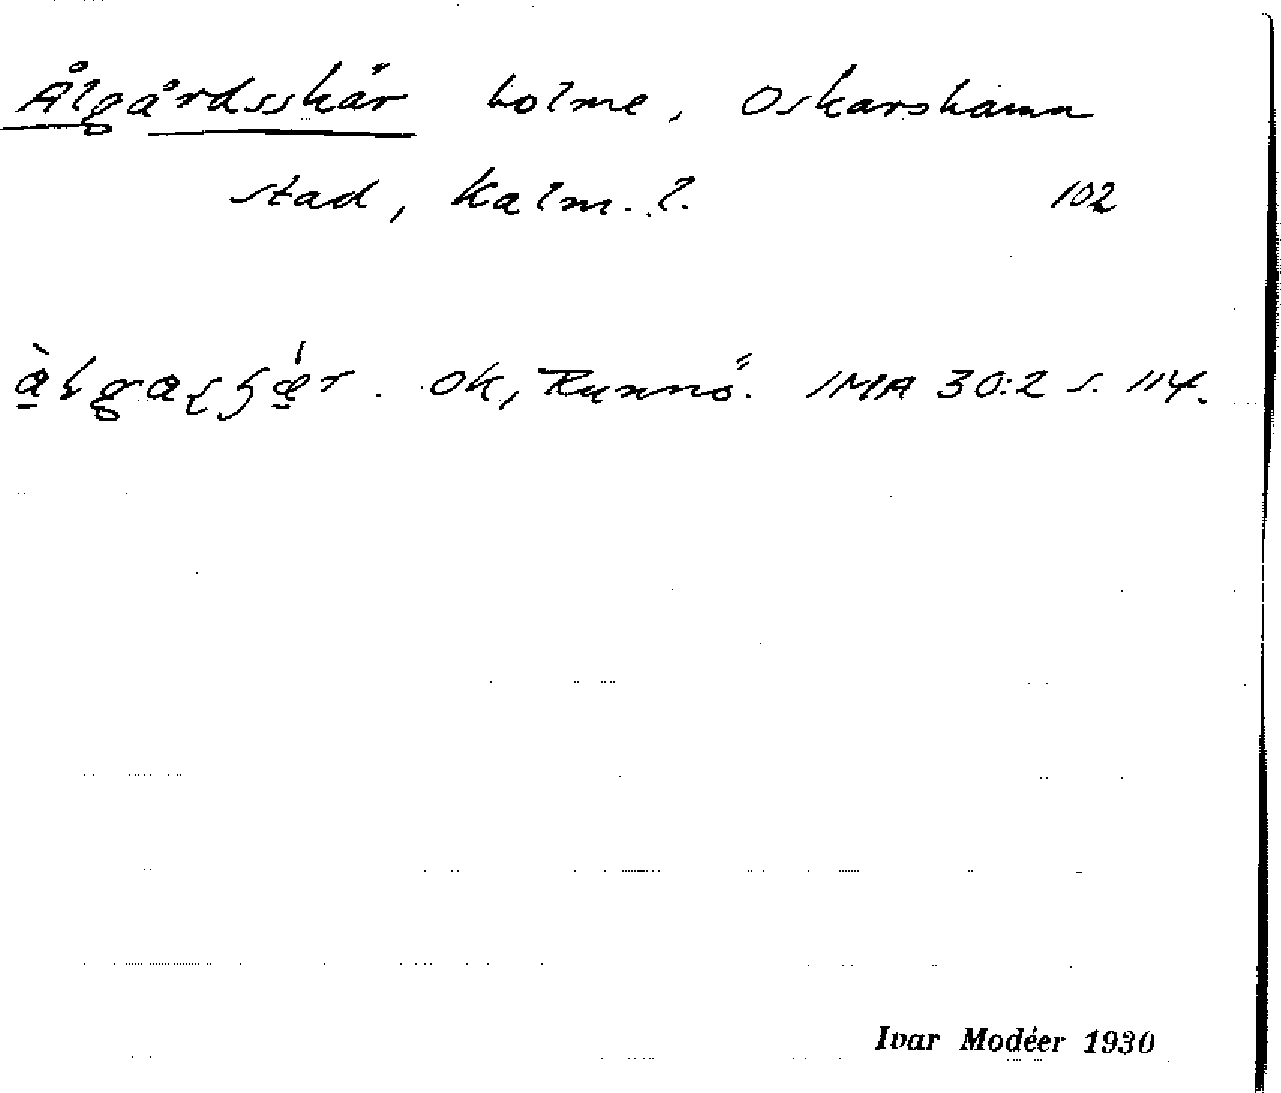 Ålgårdsskär holme, Oskarshamn
stad, Kalm. l. 102
Ok, Runnö. IMA 30:2 s. 114.
Ivar Modéer 1930